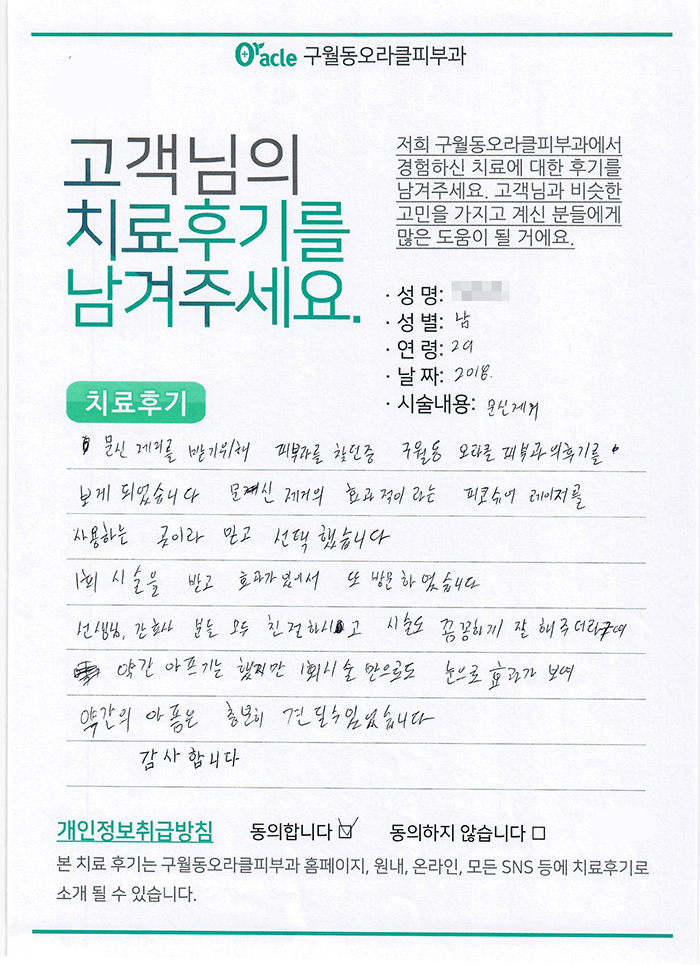 Oracle 구월동오라클피부과
고객님의
치료후기를
남겨주세요.
저희 구월동오라클피부과에서
경험하신 치료에 대한 후기를
남겨주세요. 고객님과 비슷한
고민을 가지고 계신 분들에게
많은 도움이 될 거에요.
· 성 명:
· 성 별: 남
· 연 령: 29
· 날 짜: 2018.
· 시술내용: 문신제거
치료후기
문신 제거를 받기위해 피부과를 찾던중 구월동 오라클 피부과의후기를
보게 되었습니다 문신 제거의 효과적이라는 피코슈어 레이저를
사용하는 곳이라 믿고 선택했습니다
1회 시술을 받고 효과가있어서 또 방문하였습니다
선생님, 간호사 분들 모두 친절하시고 시술도 꼼꼼하게 잘 해주더라구여
약간 아프기는 했지만 1회시술 만으로도 눈으로 효과가 보여
약간의 아픔은 충분히 견딜수있었습니다
감사합니다
개인정보취급방침 동의합니다 ☑ 동의하지 않습니다 □
본 치료 후기는 구월동오라클피부과 홈페이지, 원내, 온라인, 모든 SNS 등에 치료후기로
소개 될 수 있습니다.